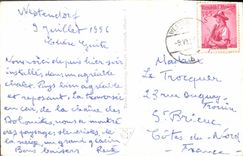 Westendorf
9 Juillet 1956
Chère
Nous voici depuis hier soir
installés dans un agréable
chalet. Pays bien agréable
et reposant. La traversée
en car de la chaîne des
Dolomites, nous a montré
des paysages
la neige, un grand glacier
Bons baisers
Madame
Le Trocquer
23 rue Duguay
Trouin
St Brieuc
Côtes du Nord
France